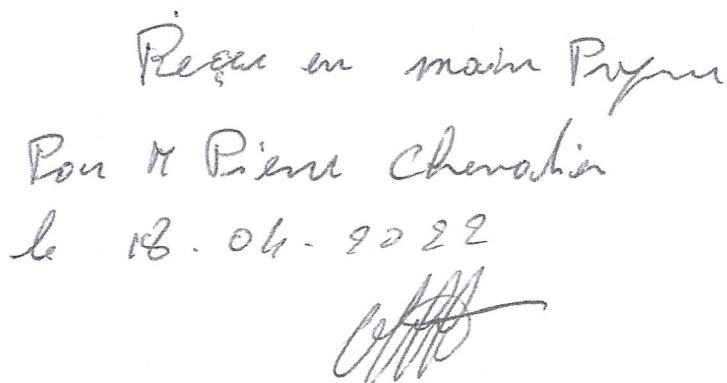 Reçu en main Propre
Pour M Pierre Chevalier
le 18.04.2022